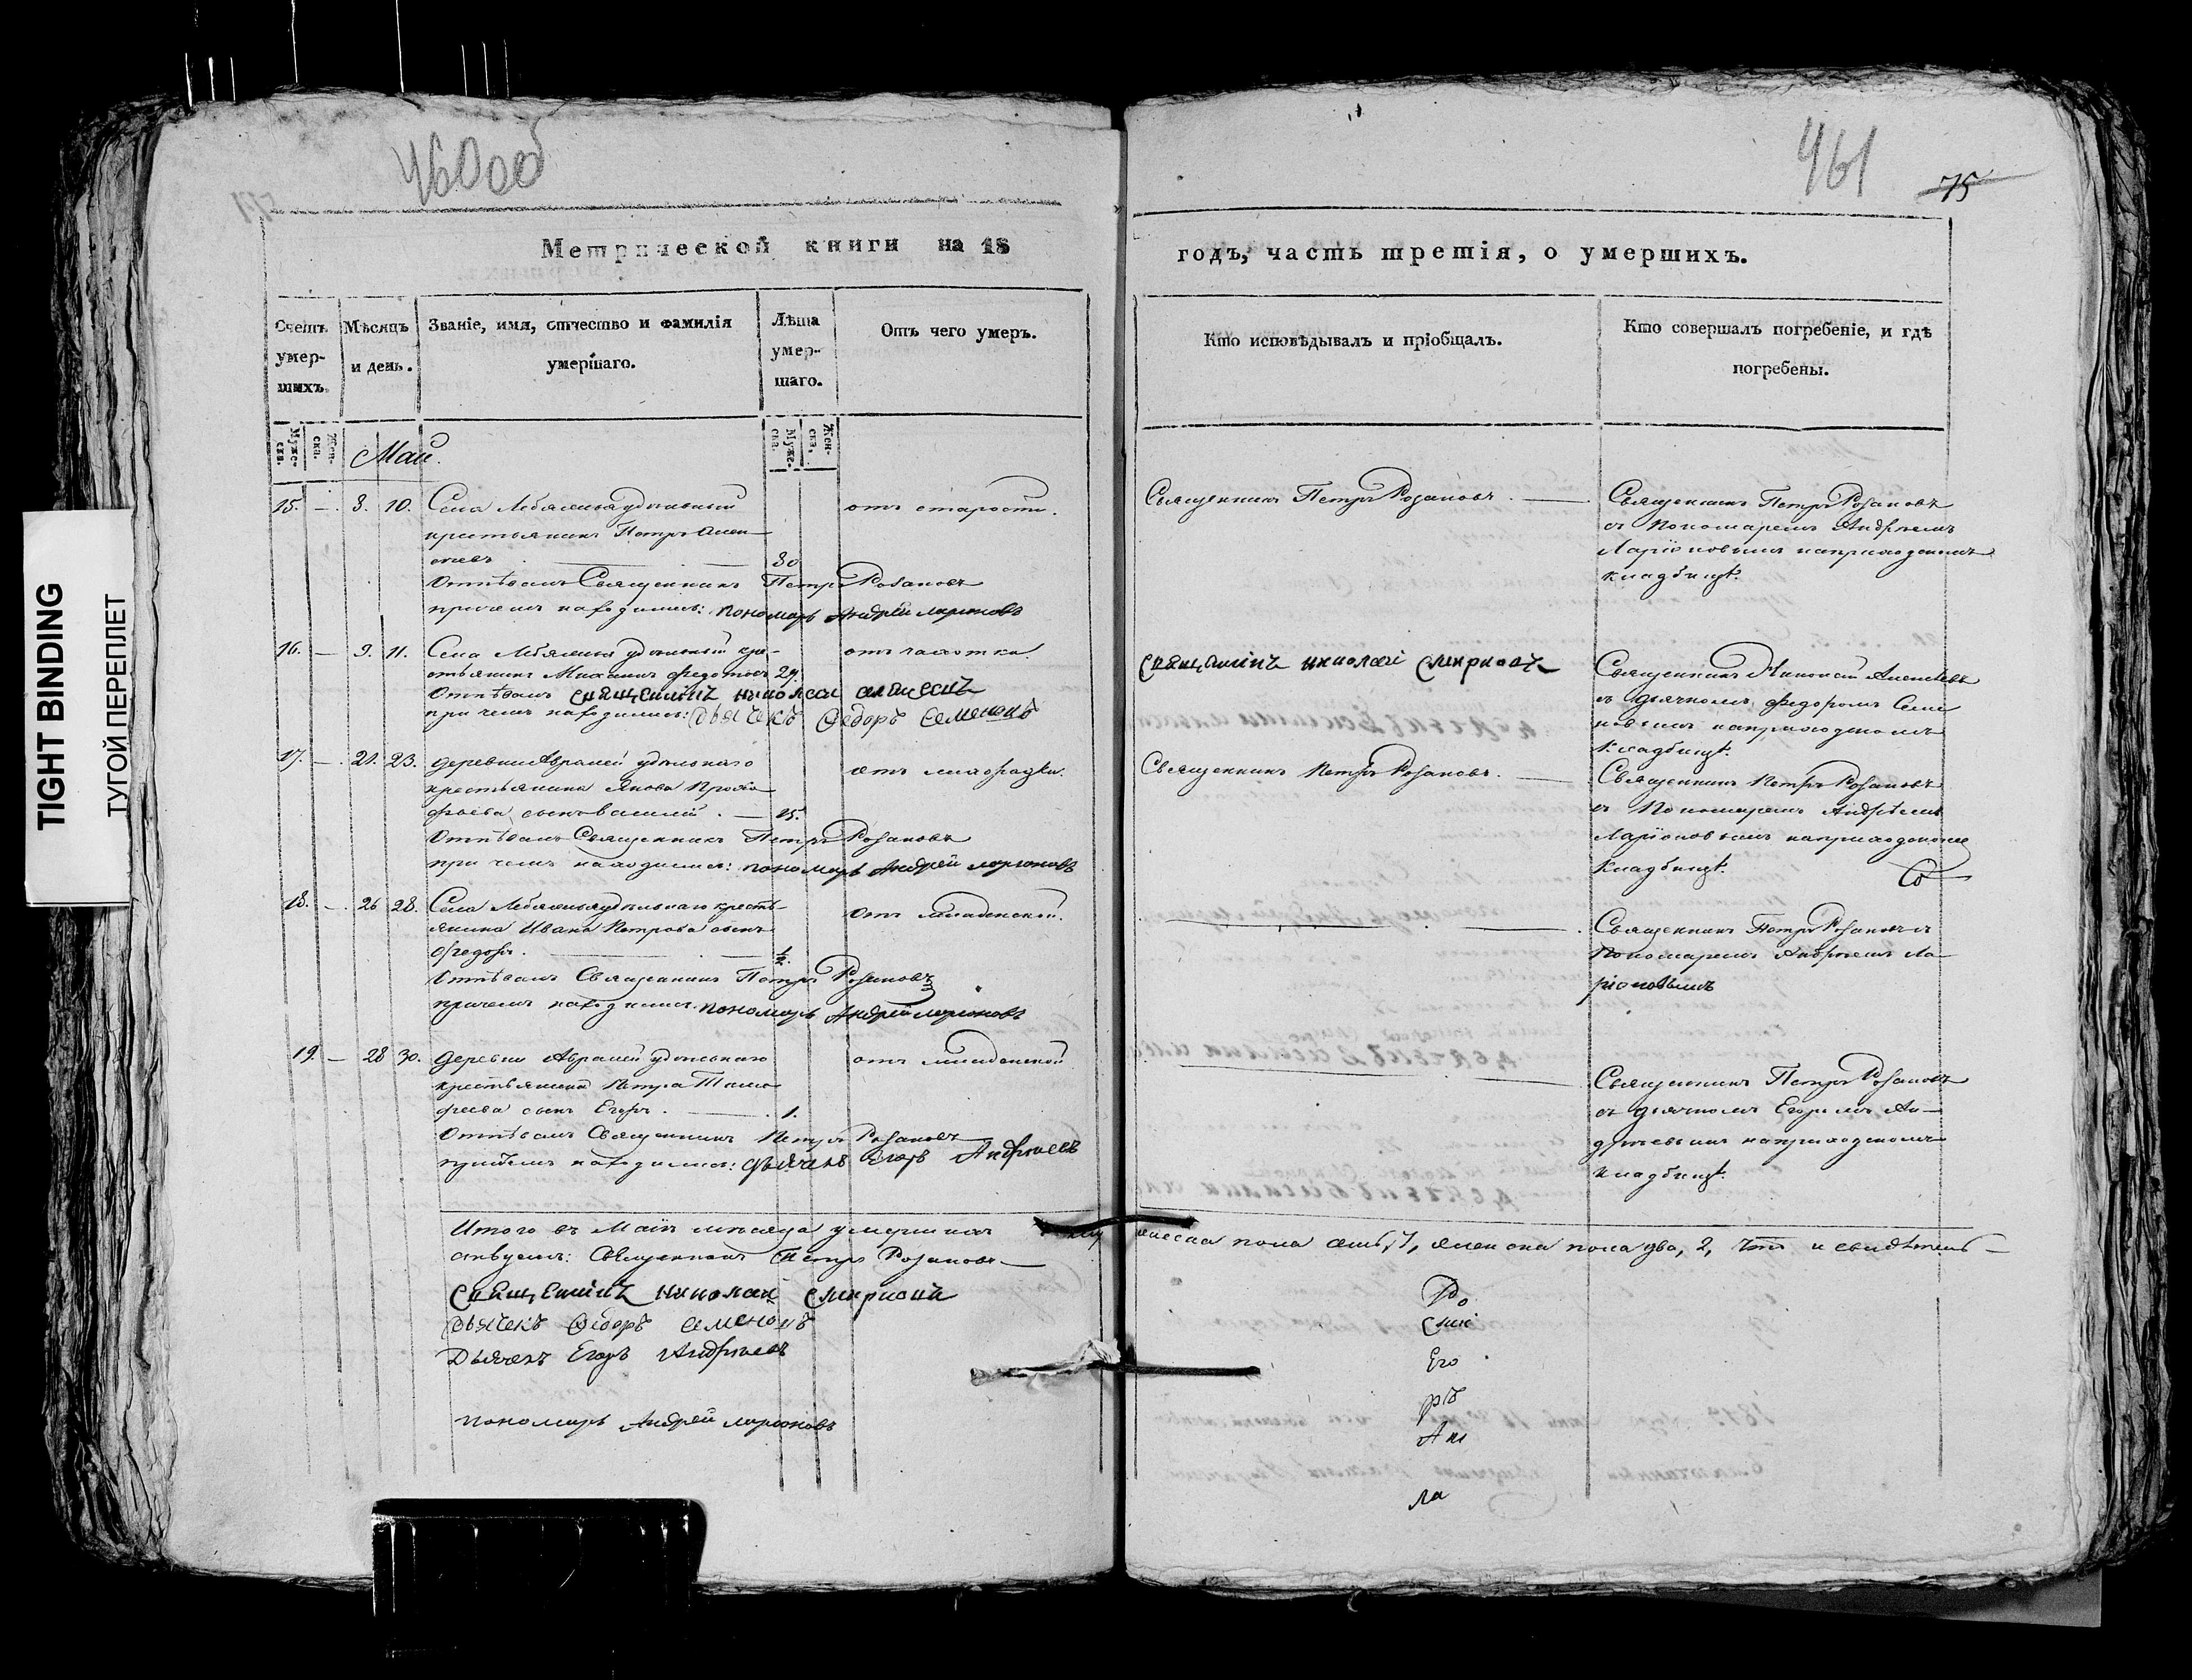 460об
461
75
Метрической книги на 18
годъ, часть третія, о умершихъ.
Счетъ умер-шихъ.
Мѣсяцъ и день.
Званіе, имя, отчество и фамилія умершаго.
Лѣта умер-шаго.
Отъ чего умеръ.
Кто исповѣдывалъ и пріобщалъ.
Кто совершалъ погребеніе, и гдѣ погребены.
Муже-ска.
Жен-ска.
Муже-ска.
Жен-ска.
Май.
15. — 8. 10. Села удѣльный
крестьянинъ Петръ
80
Отпѣвалъ Священникъ Петръ Розановъ
причемъ находились: пономарь Андрей Ларионовъ
отъ старости.
Священникъ Петръ Розановъ.
Священникъ Петръ Розановъ
съ Пономаремъ Андреемъ
Ларіоновымъ на приходскомъ
кладбищѣ.
16. — 9. 11. Села удѣльный кре-
стьянинъ Михаилъ Федотовъ 29.
Отпѣвалъ священникъ николай алексеевъ
при чемъ находились: дьячекъ Федоръ Семеновъ
отъ чахотки.
священникъ николай смирновъ
Священникъ Николай Алексѣевъ
съ дьячкомъ Федоромъ Семе
новымъ на приходскомъ
кладбищѣ.
17. — 21. 23. деревни удѣльнаго
крестьянина Якова
фьева сынъ василій. — 25.
Отпѣвалъ Священникъ Петръ Розановъ
при чемъ находились: пономарь Андрей ларионовъ
отъ лихорадки.
Священникъ Петръ Розановъ.
Священникъ Петръ Розановъ
съ Пономаремъ Андрѣемъ
Ларіоновымъ на приходскомъ
кладбищѣ.
18. — 26 28. Села удѣльнаго кресть-
янина Ивана Петрова сынъ
Федоръ. ½.
Отпѣвалъ Священникъ Петръ Розановъ
причемъ находились пономарь Андрей ларионовъ
отъ младенской.
Священникъ Петръ Розановъ съ
Пономаремъ Андреемъ Ла-
ріоновымъ
19. — 28 30. деревни удѣльнаго
крестьянина Петра Тимо
феева сынъ Егоръ. 1.
Отпѣвалъ Священникъ Петръ Розановъ
причемъ находились: дьячекъ Егоръ Андреевъ
отъ младенской
Священникъ Петръ Розановъ
съ дьячкомъ Егоромъ Ан-
дреевымъ на приходскомъ
кладбищѣ.
Итого въ Маѣ мѣсяцѣ умершихъ му
жеска пола семь, 7, женска пола два, 2, что и свидѣтель-
ствуемъ: Священникъ Петръ Розановъ
священникъ николай смирновъ
дьячекъ Федоръ семеновъ
Дьячекъ Егоръ Андреевъ
пономарь Андрей ларионовъ
Его
рій
Ан
ла
TIGHT BINDING
ТУГОЙ ПЕРЕПЛЕТ